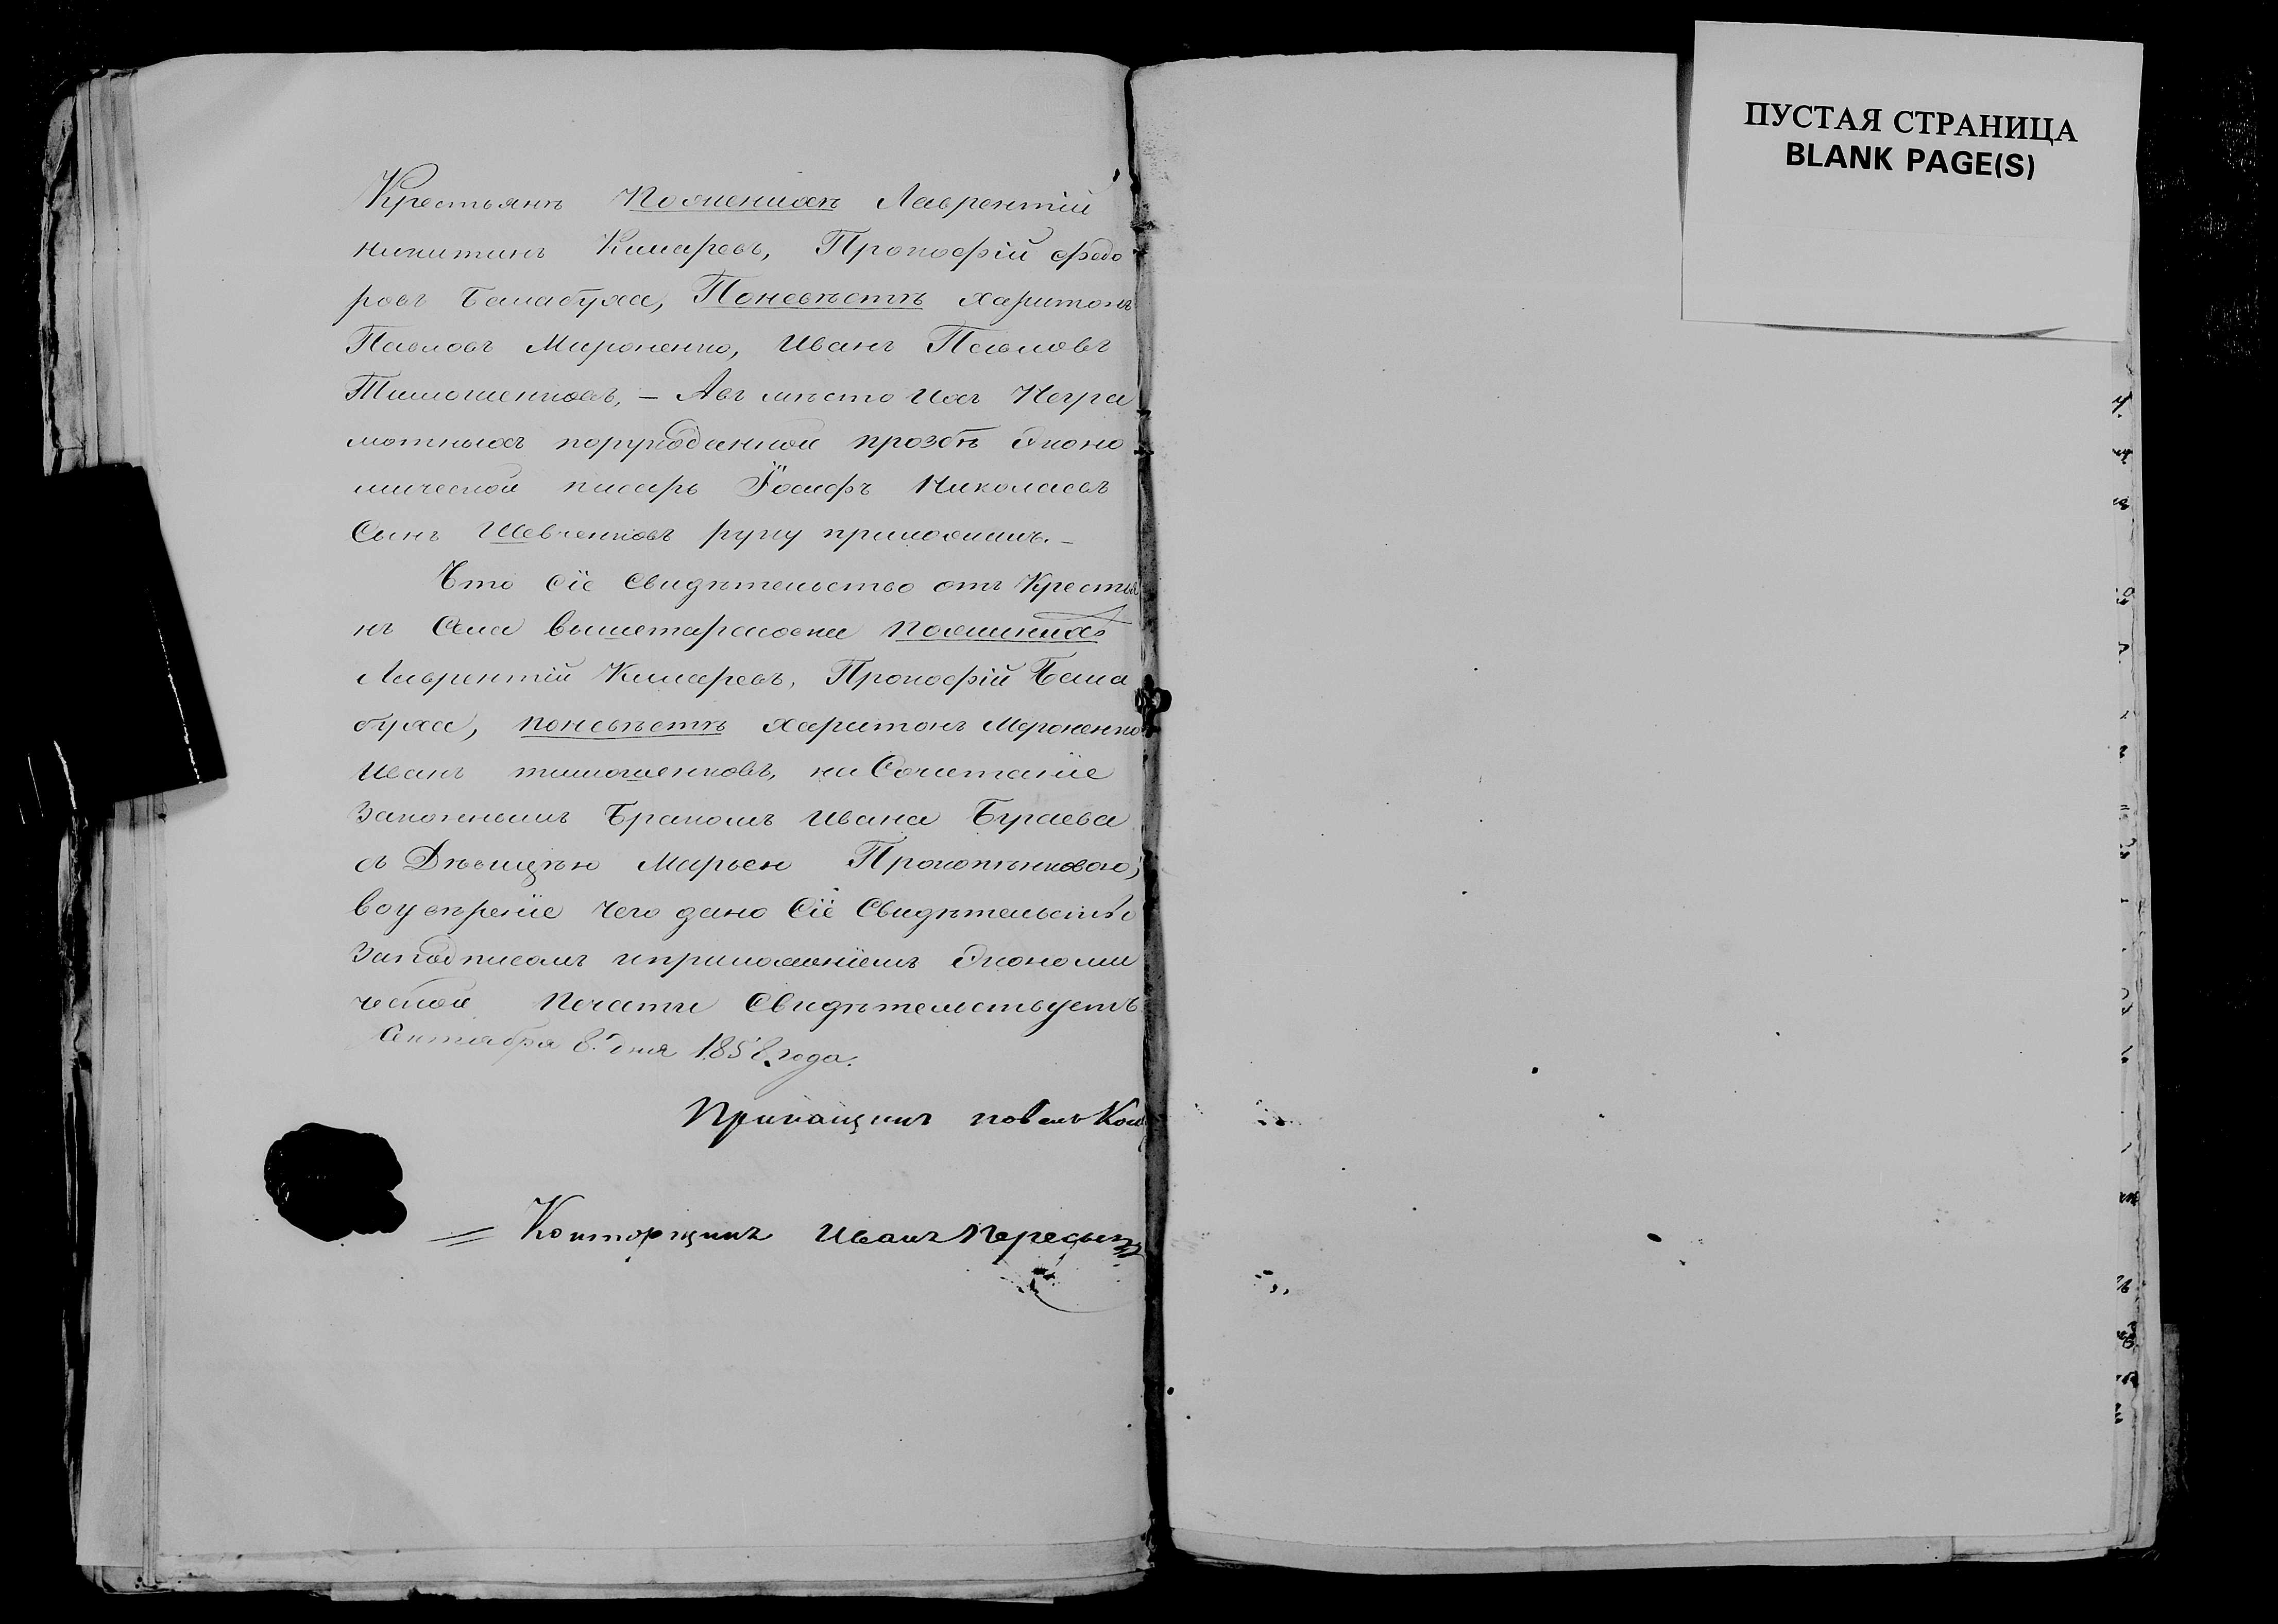 Крестьянъ Поженихѣ Лаврентій
никитинъ Кимаревъ, Прокофій Федо
ровъ Балабуха, Поневѣстѣ харитонъ
Павловъ Мироненко, Иванъ Павловъ
Тимошенковъ, – Авъ мѣсто Ихъ Негра
мотныхъ порукоданной прозбѣ Эконо
мической писарь Іосифъ Николаевъ
Сынъ Шевченковъ руку приложилъ. –
Что Сіе Свидѣтельство отъ Крестья
нъ Села вышетарасовки пожиниха
Лаврентій Кимаревъ, Прокофій Бала
буха, поневѣстѣ харитонъ Мероненко
Иванъ тимошенковъ, на Сочетаніе
Законнымъ Бракомъ Ивана Бугаева
съ Дѣвицѣю Марьею Прокопѣнковою,
воувѣреніе Чего дано Сіе Свидѣтельство
Заподписомъ иприложеніемъ Экономи
ческой Печати Свидѣтельствуетъ
Сентября 8. дня 1858. года.
Прикащикъ повелъ
= Конторщикъ Иванъ
ПУСТАЯ СТРАНИЦА
BLANK PAGE(S)